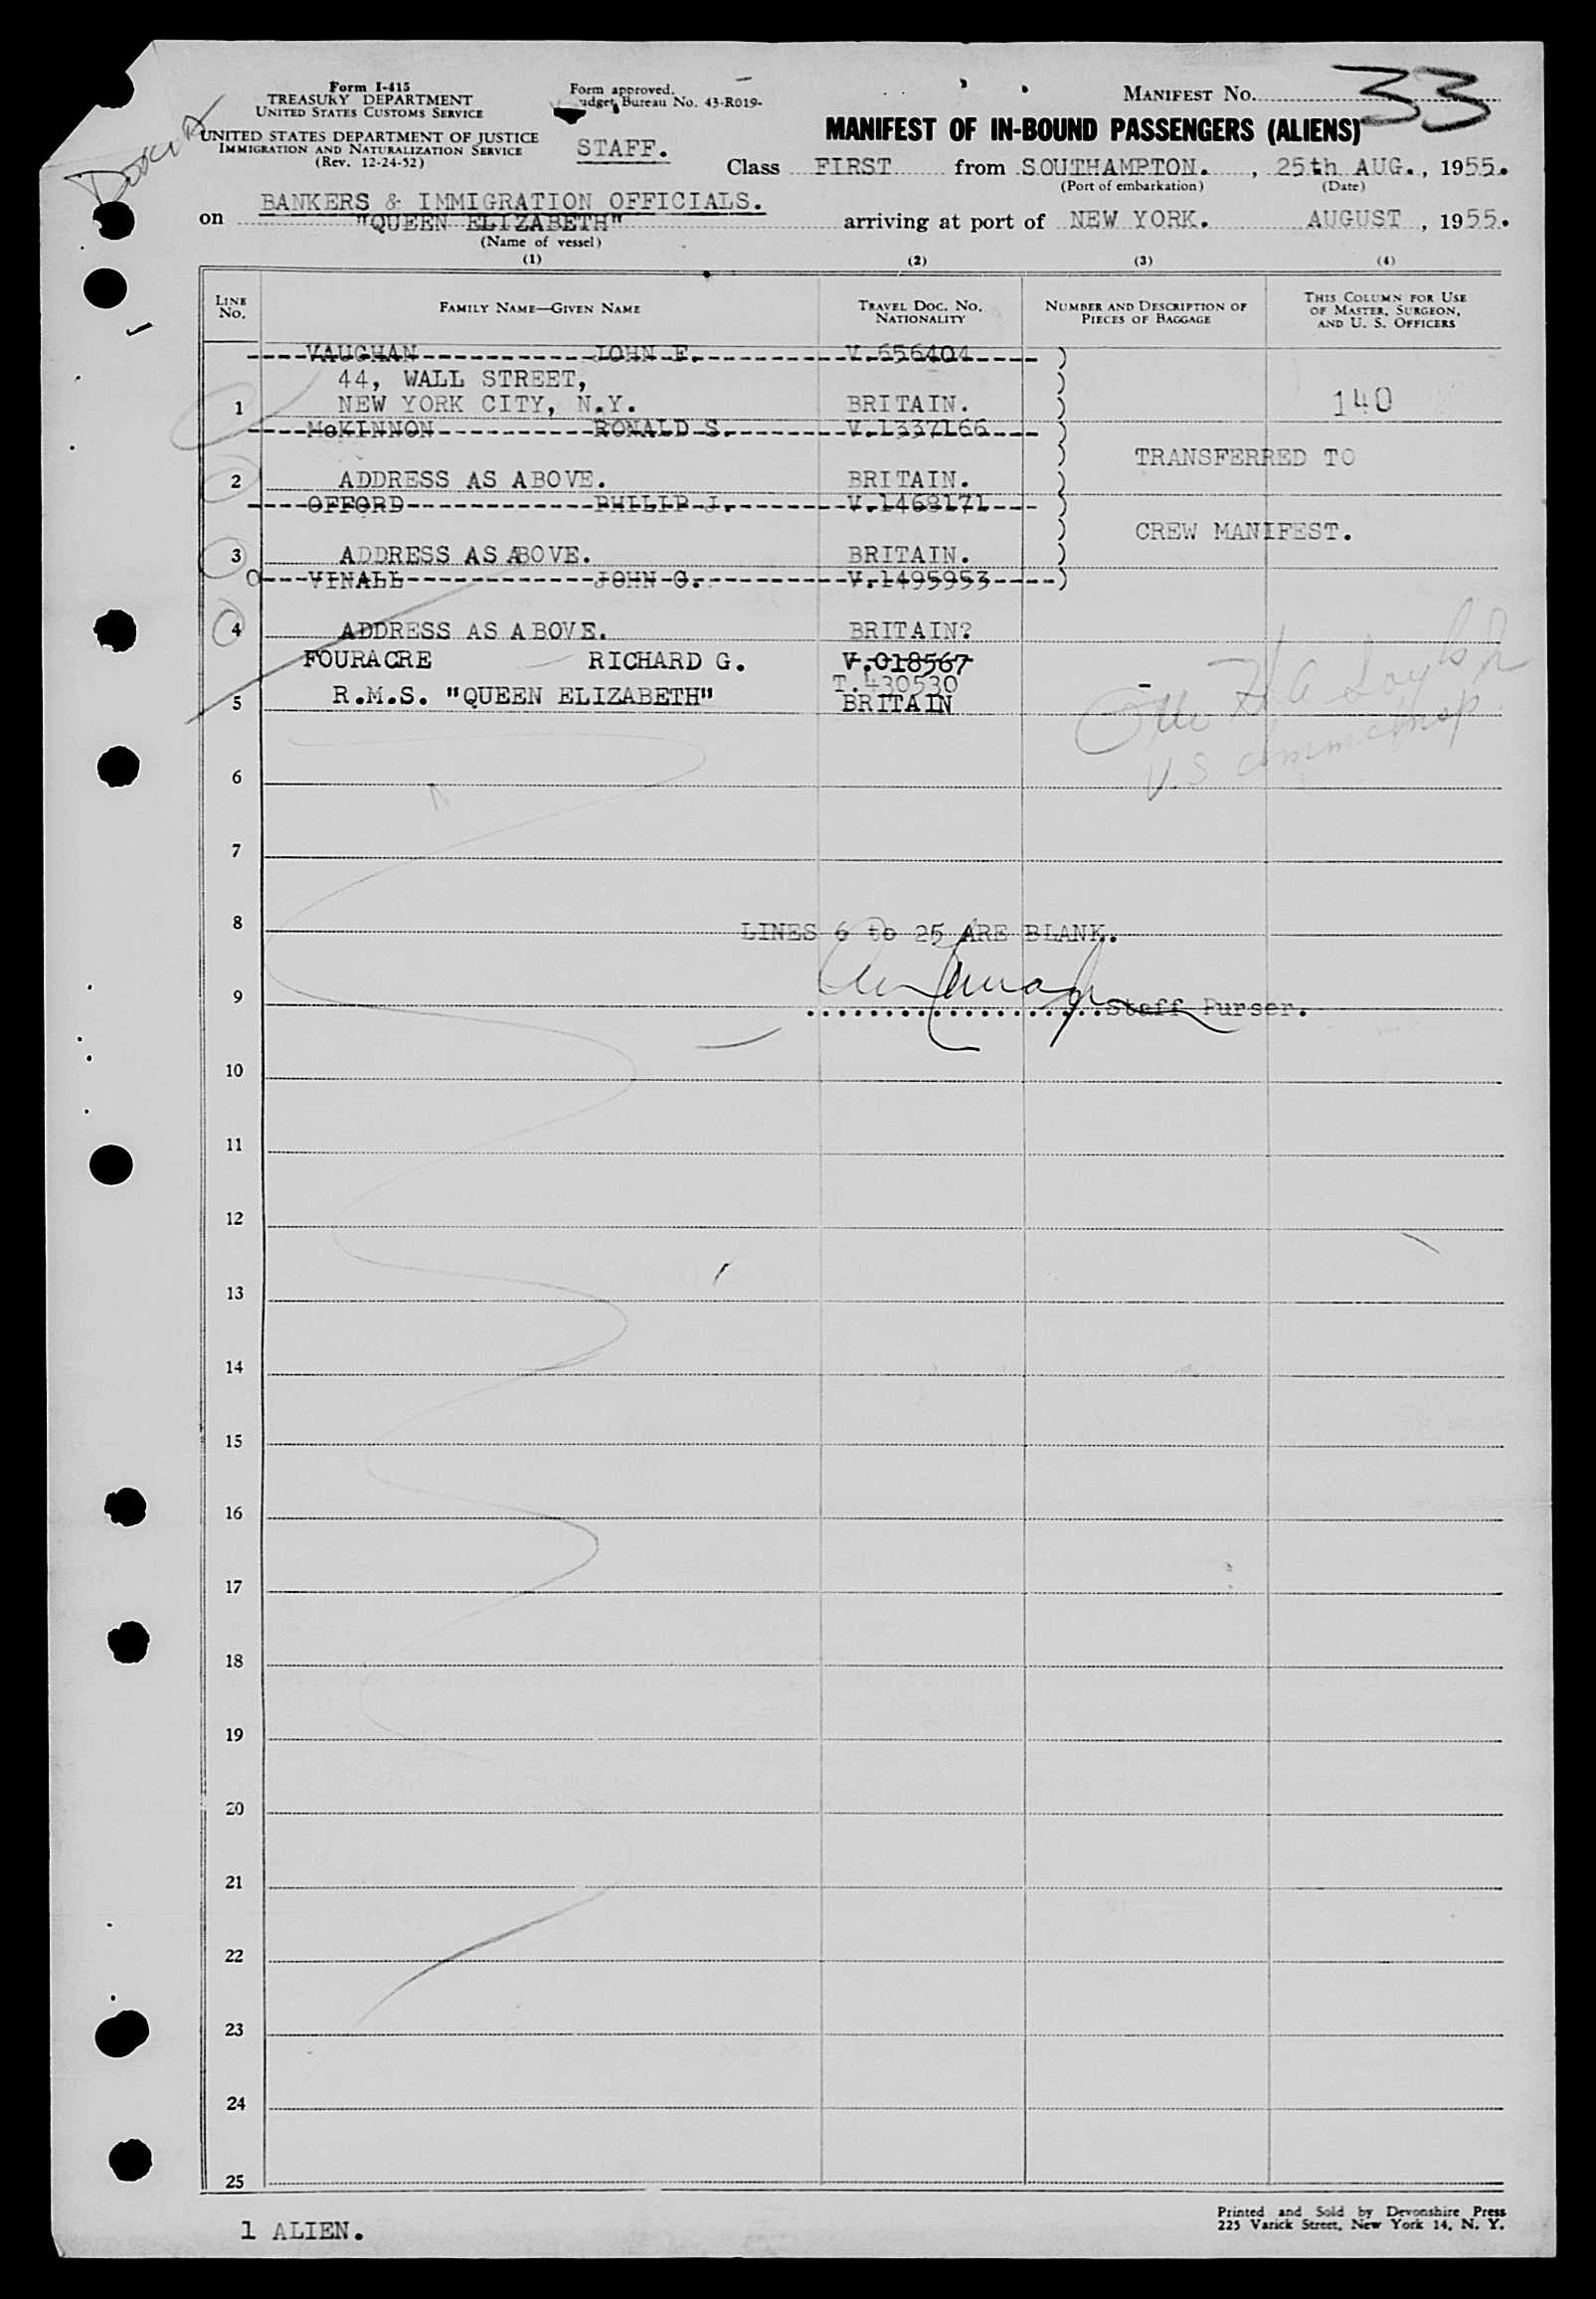 Form I-415
TREASURY DEPARTMENT
UNITED STATES CUSTOMS SERVICE
UNITED STATES DEPARTMENT OF JUSTICE
IMMIGRATION AND NATURALIZATION SERVICE
(Rev. 12-24-52)
Form approved.
Budget Bureau No. 43-R019-
STAFF.
MANIFEST No. 33
MANIFEST OF IN-BOUND PASSENGERS (ALIENS)
Class FIRST from SOUTHAMPTON. , 25th AUG. , 1955.
(Port of embarkation) (Date)
BANKERS & IMMIGRATION OFFICIALS.
on "QUEEN ELIZABETH" arriving at port of NEW YORK. AUGUST , 1955.
(Name of vessel)
(1) (2) (3) (4)
LINE No. FAMILY NAME—GIVEN NAME TRAVEL DOC. No. NATIONALITY NUMBER AND DESCRIPTION OF PIECES OF BAGGAGE THIS COLUMN FOR USE OF MASTER, SURGEON, AND U. S. OFFICERS
VAUGHAN JOHN E. V.656404 )
44, WALL STREET, )
1 NEW YORK CITY, N.Y. BRITAIN. ) 140
McKINNON RONALD S. V.1337166 )
) TRANSFERRED TO
2 ADDRESS AS ABOVE. BRITAIN. )
OFFORD PHILIP J. V.1468171 )
) CREW MANIFEST.
3 ADDRESS AS ABOVE. BRITAIN. )
VINALL JOHN G. V.1495953 )
4 ADDRESS AS ABOVE. BRITAIN?
FOURACRE RICHARD G. V.018567
T.430530
5 R.M.S. "QUEEN ELIZABETH" BRITAIN
U.S Imm. Insp
6
7
8 LINES 6 to 25 ARE BLANK.
9 Staff Purser.
10
11
12
13
14
15
16
17
18
19
20
21
22
23
24
25
1 ALIEN.
Printed and Sold by Devonshire Press
225 Varick Street, New York 14, N. Y.